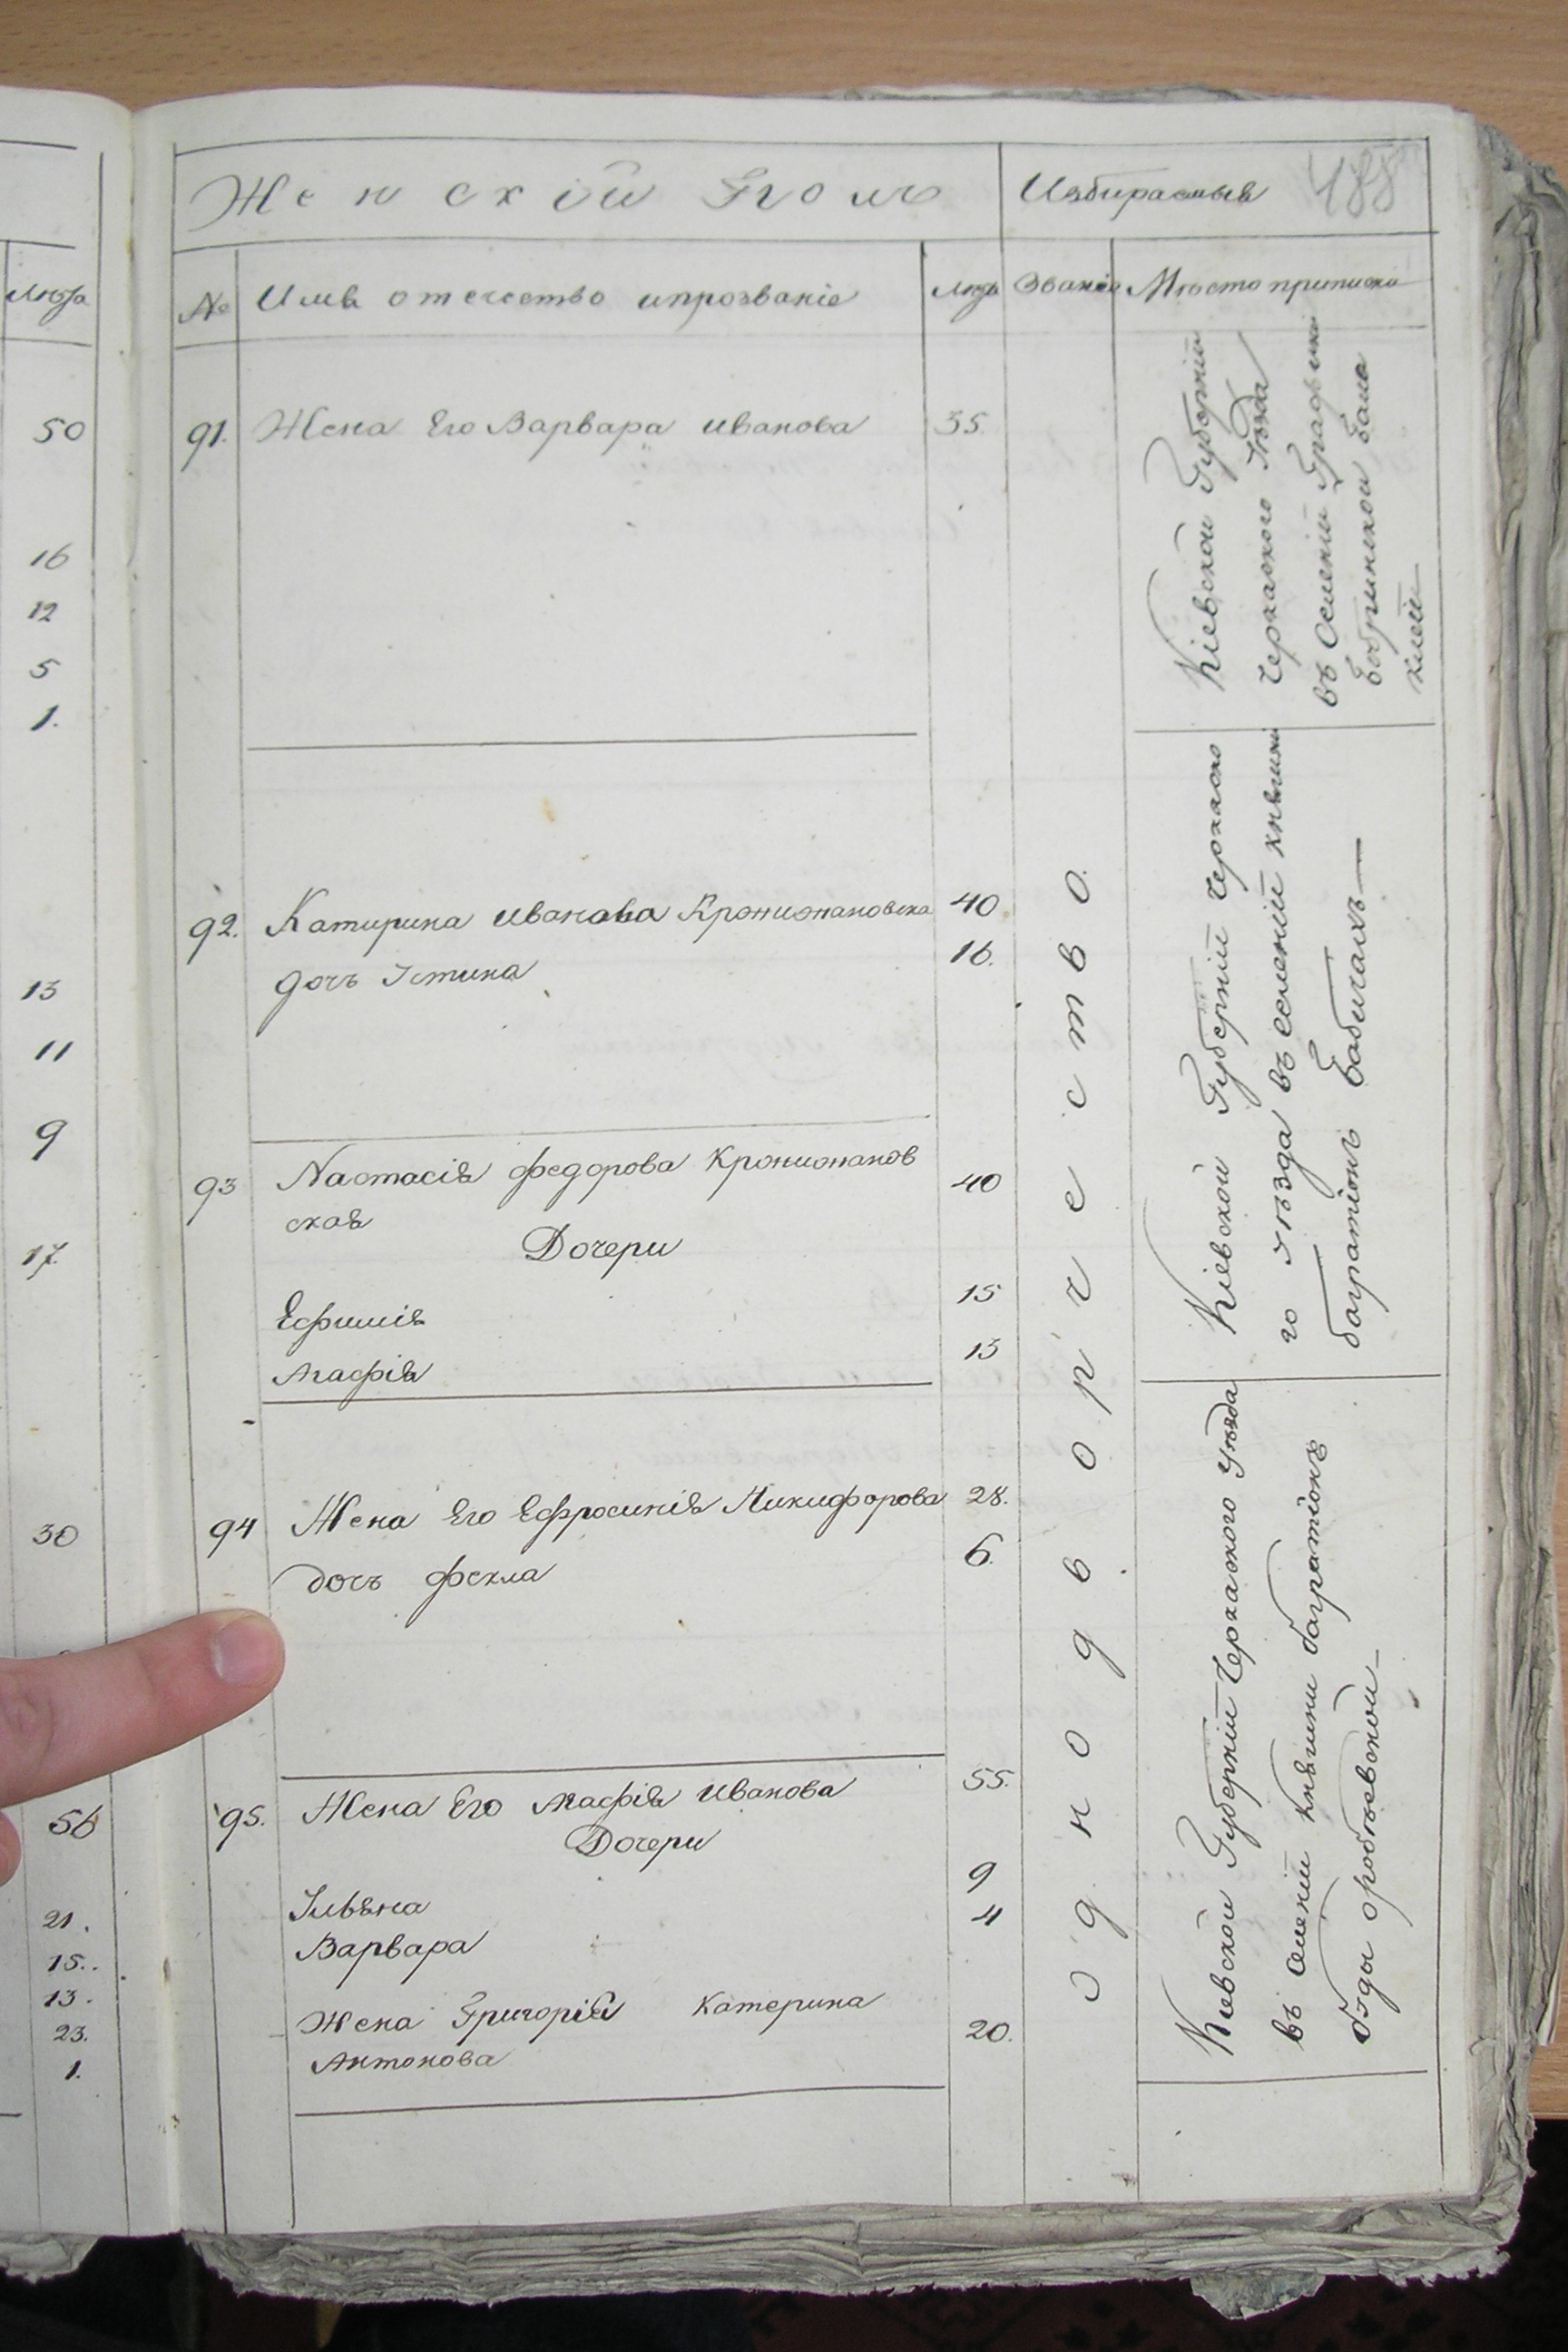 Лѣта
50
16
12
5
1.
13
11
9
17.
30
56
21.
15.
13.
23.
1.
Женскій Полъ
Избираемыя
488
№
Имя отечество ипрозваніе
Лѣта
Званіе
Мѣсто приписки
91.
Жена Его Варвара Иванова
35.
92.
Катирина Иванова
40
дочъ Iстина
16.
93
Настасія Федорова
40
ская
Дочери
Ефимія
15
Агафія
13
94
Жена Его Ефросинія Никифорова
28.
дочъ Фекла
6.
95.
Жена Его Агафія Иванова
55.
Дочери
9
Варвара
4
Жена Григорія Катерина
20.
Антонова
Однодворчество.
Кіевской Губерніи
Черкаского Уѣзда
въ Селеніи Графини
Бобринской Бала
клеи
Кіевской Губерніи Черкаско
го Уѣзда въ селеніи княгини
багратіонъ Бабичахъ
Кіевской Губерніи Черкаского Уѣзда
въ Селеніи княгини багратіонъ